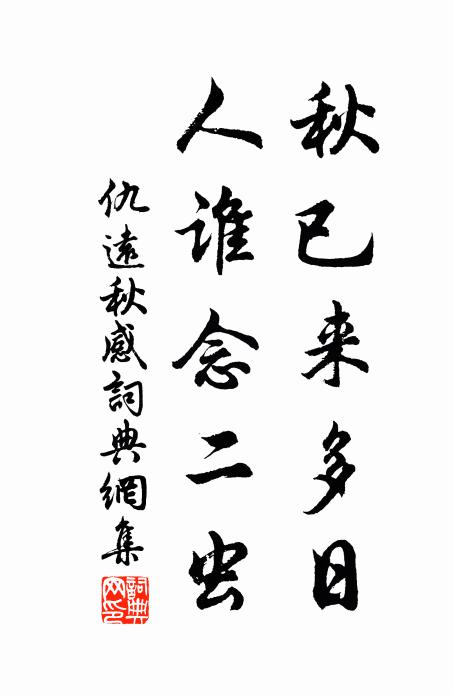 秋已来多日
人谁念二虫
仇遠秋感詞典網集
詞典網印